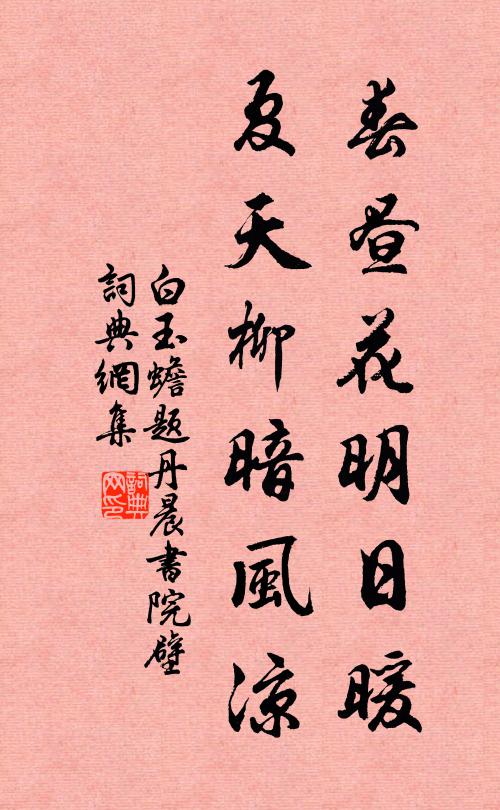 春晝花明日暖
夏天柳暗風涼
白玉蟾題丹晨書院壁
詞典網集
詞典網印